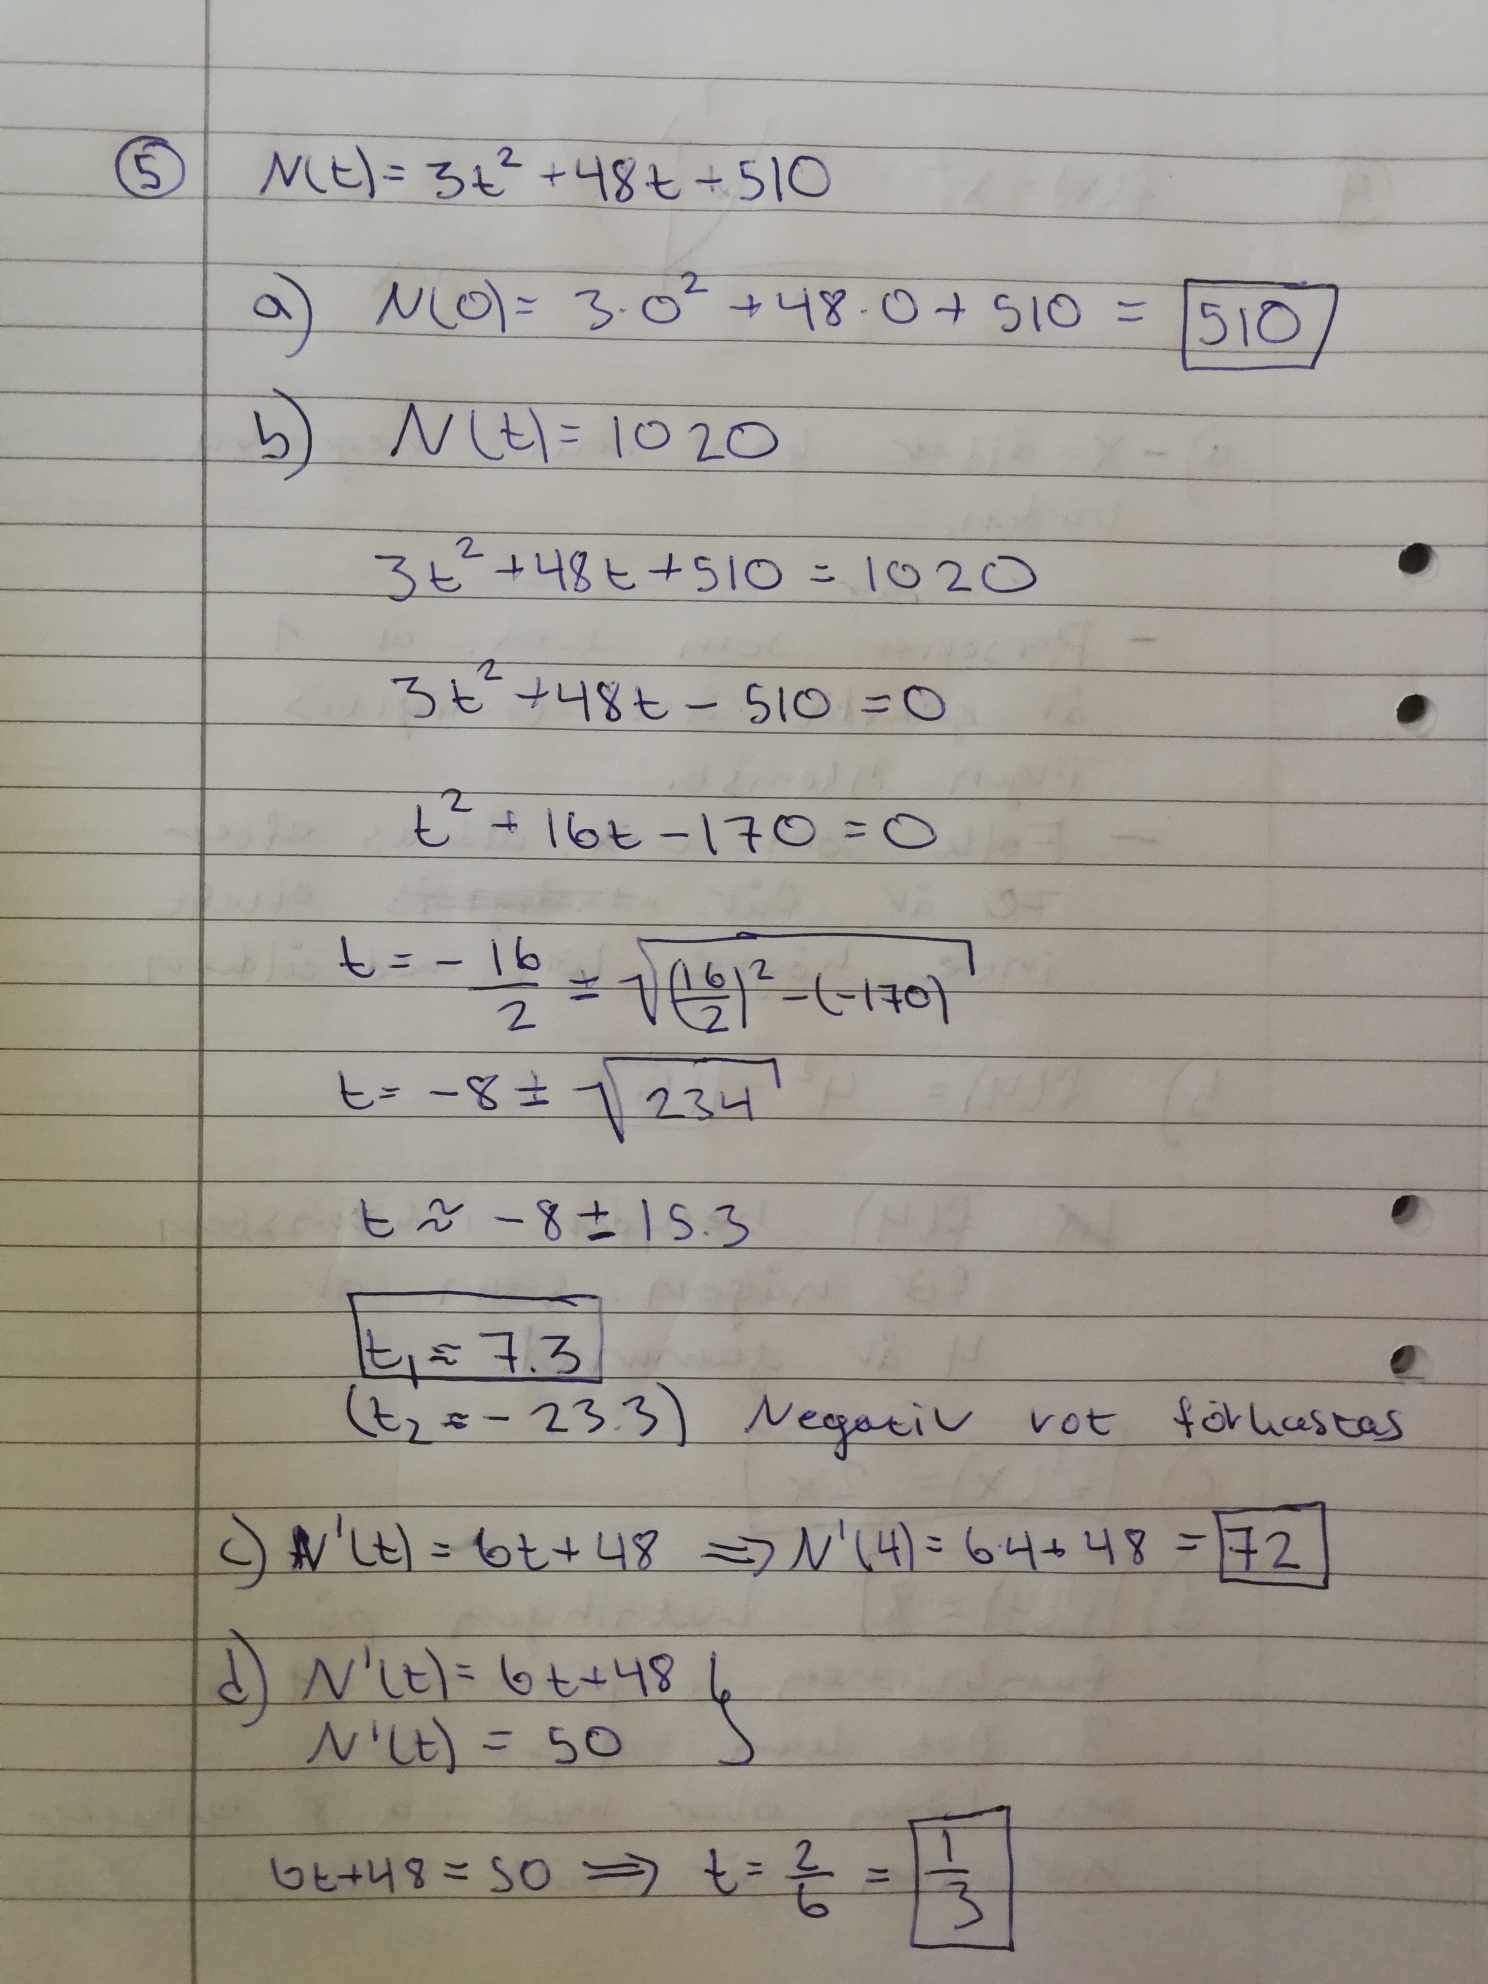 5 N(t) = 3t² + 48t + 510
a) N(0) = 3·0² + 48·0 + 510 = 510
b) N(t) = 1020
3t² + 48t + 510 = 1020
3t² + 48t - 510 = 0
t² + 16t - 170 = 0
t = - 16/2 ± √((16/2)² - (-170))
t = -8 ± √234
t ≈ -8 ± 15.3
t₁ ≈ 7.3
(t₂ ≈ -23.3) Negativ rot förkastas
c) N'(t) = 6t + 48 ⇒ N'(4) = 6·4 + 48 = 72
d) N'(t) = 6t + 48 }
N'(t) = 50
6t + 48 = 50 ⇒ t = 2/6 = 1/3